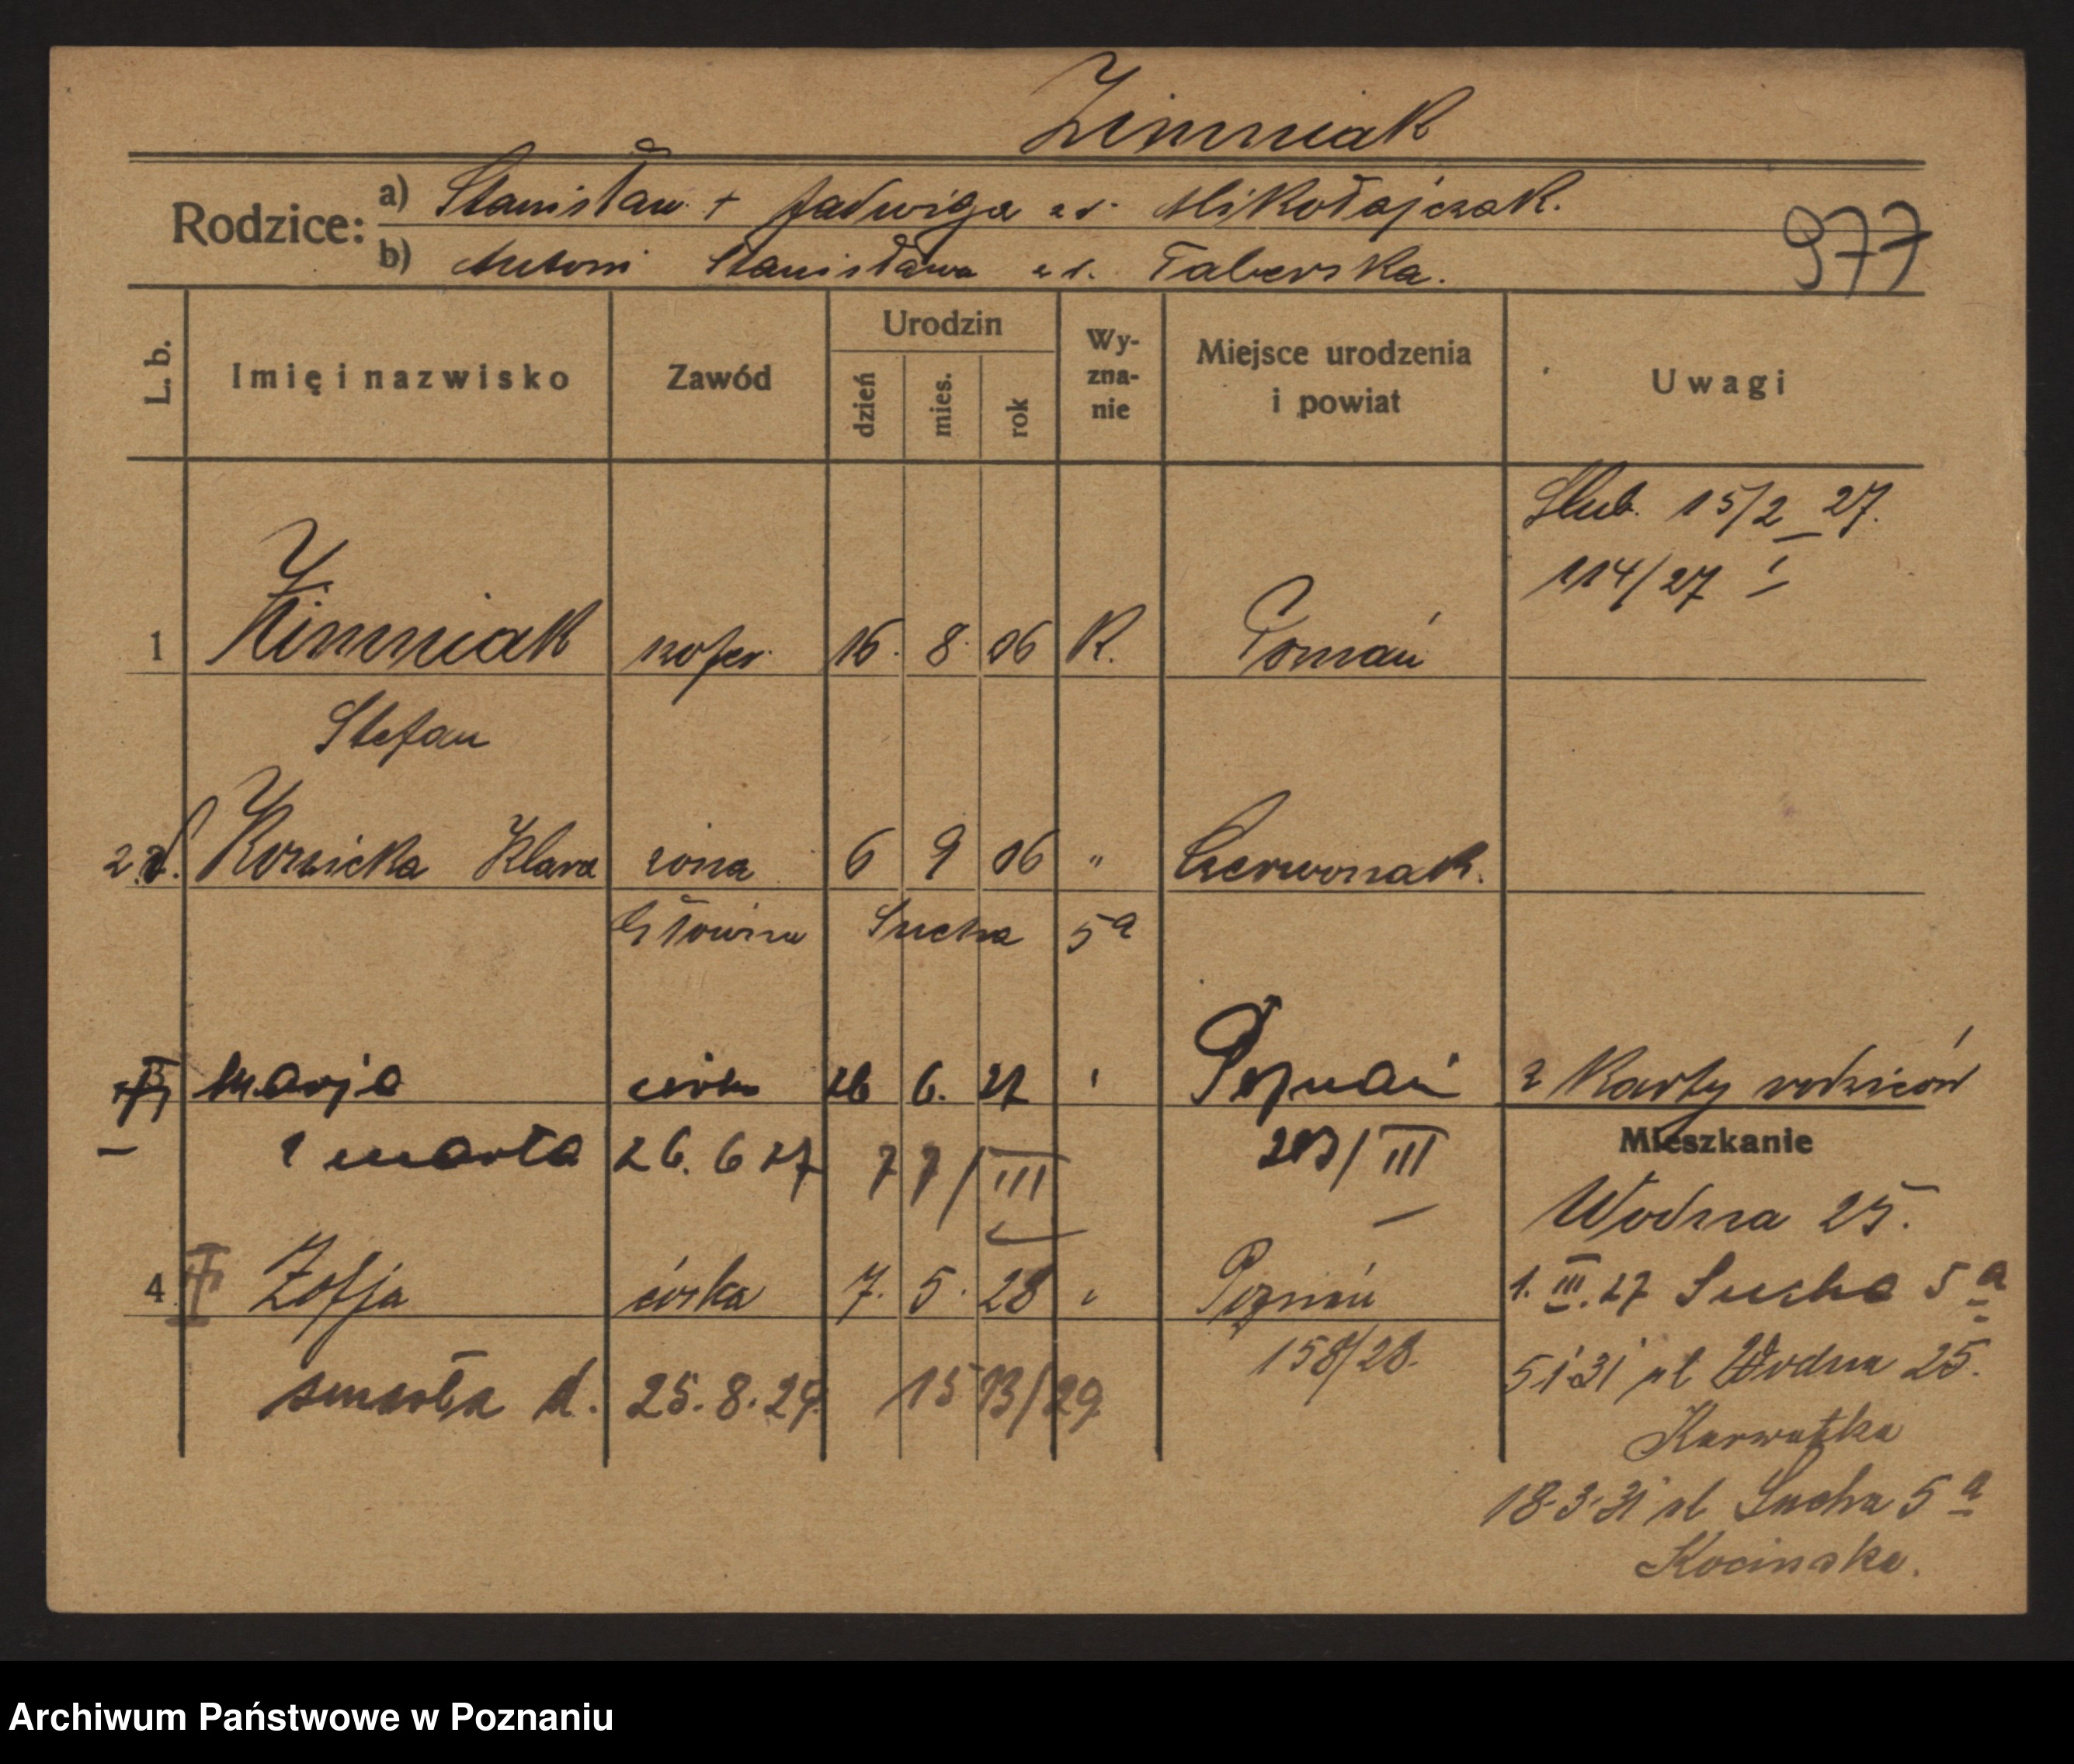 Zimniak
Rodzice: a) Stanisław + Jadwiga zd. Mikołajczak.
977
b) Antoni Stanisława zd. Taberska.
L. b. Imię i nazwisko Zawód Urodzin Wy-zna-nie Miejsce urodzenia i powiat Uwagi
dzień mies. rok
Ślub. 15/2 27.
114/27 I
1 Zimniak szofer 16. 8. 06 K. Poznań
Stefan
2 Korzicka Klara żona 6 9 06 " Czerwonak.
Główna Sucha 5a
3 Marja córka 26 6. 27 " Poznań z karty rodziców
zmarła 26. 6 27 77/III 213/III
Mieszkanie
Wodna 25.
4 Zofja córka 7. 5. 28 " Poznań
1. III. 27 Sucha 5a
158/28.
5 1 31 ul Wodna 25.
zmarła d. 25. 8. 29. 1513/29
Karwatka
18-3-31 ul Sucha 5a
Kocinska.
Archiwum Państwowe w Poznaniu